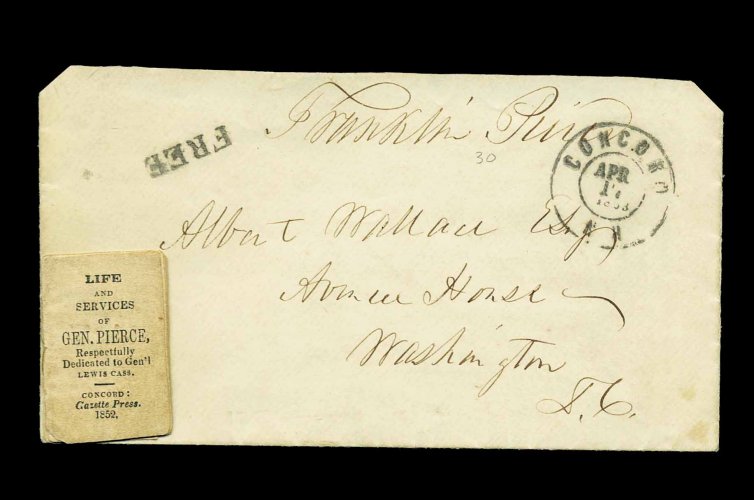 Franklin Pierce
FREE
30
CONCORD
APR
N H
Albert Wallace Esq
Avenue House
Washington
D.C.
LIFE
AND
SERVICES
OF
GEN. PIERCE,
Respectfully
Dedicated to Gen'l
LEWIS CASS.
CONCORD:
Gazette Press.
1852.